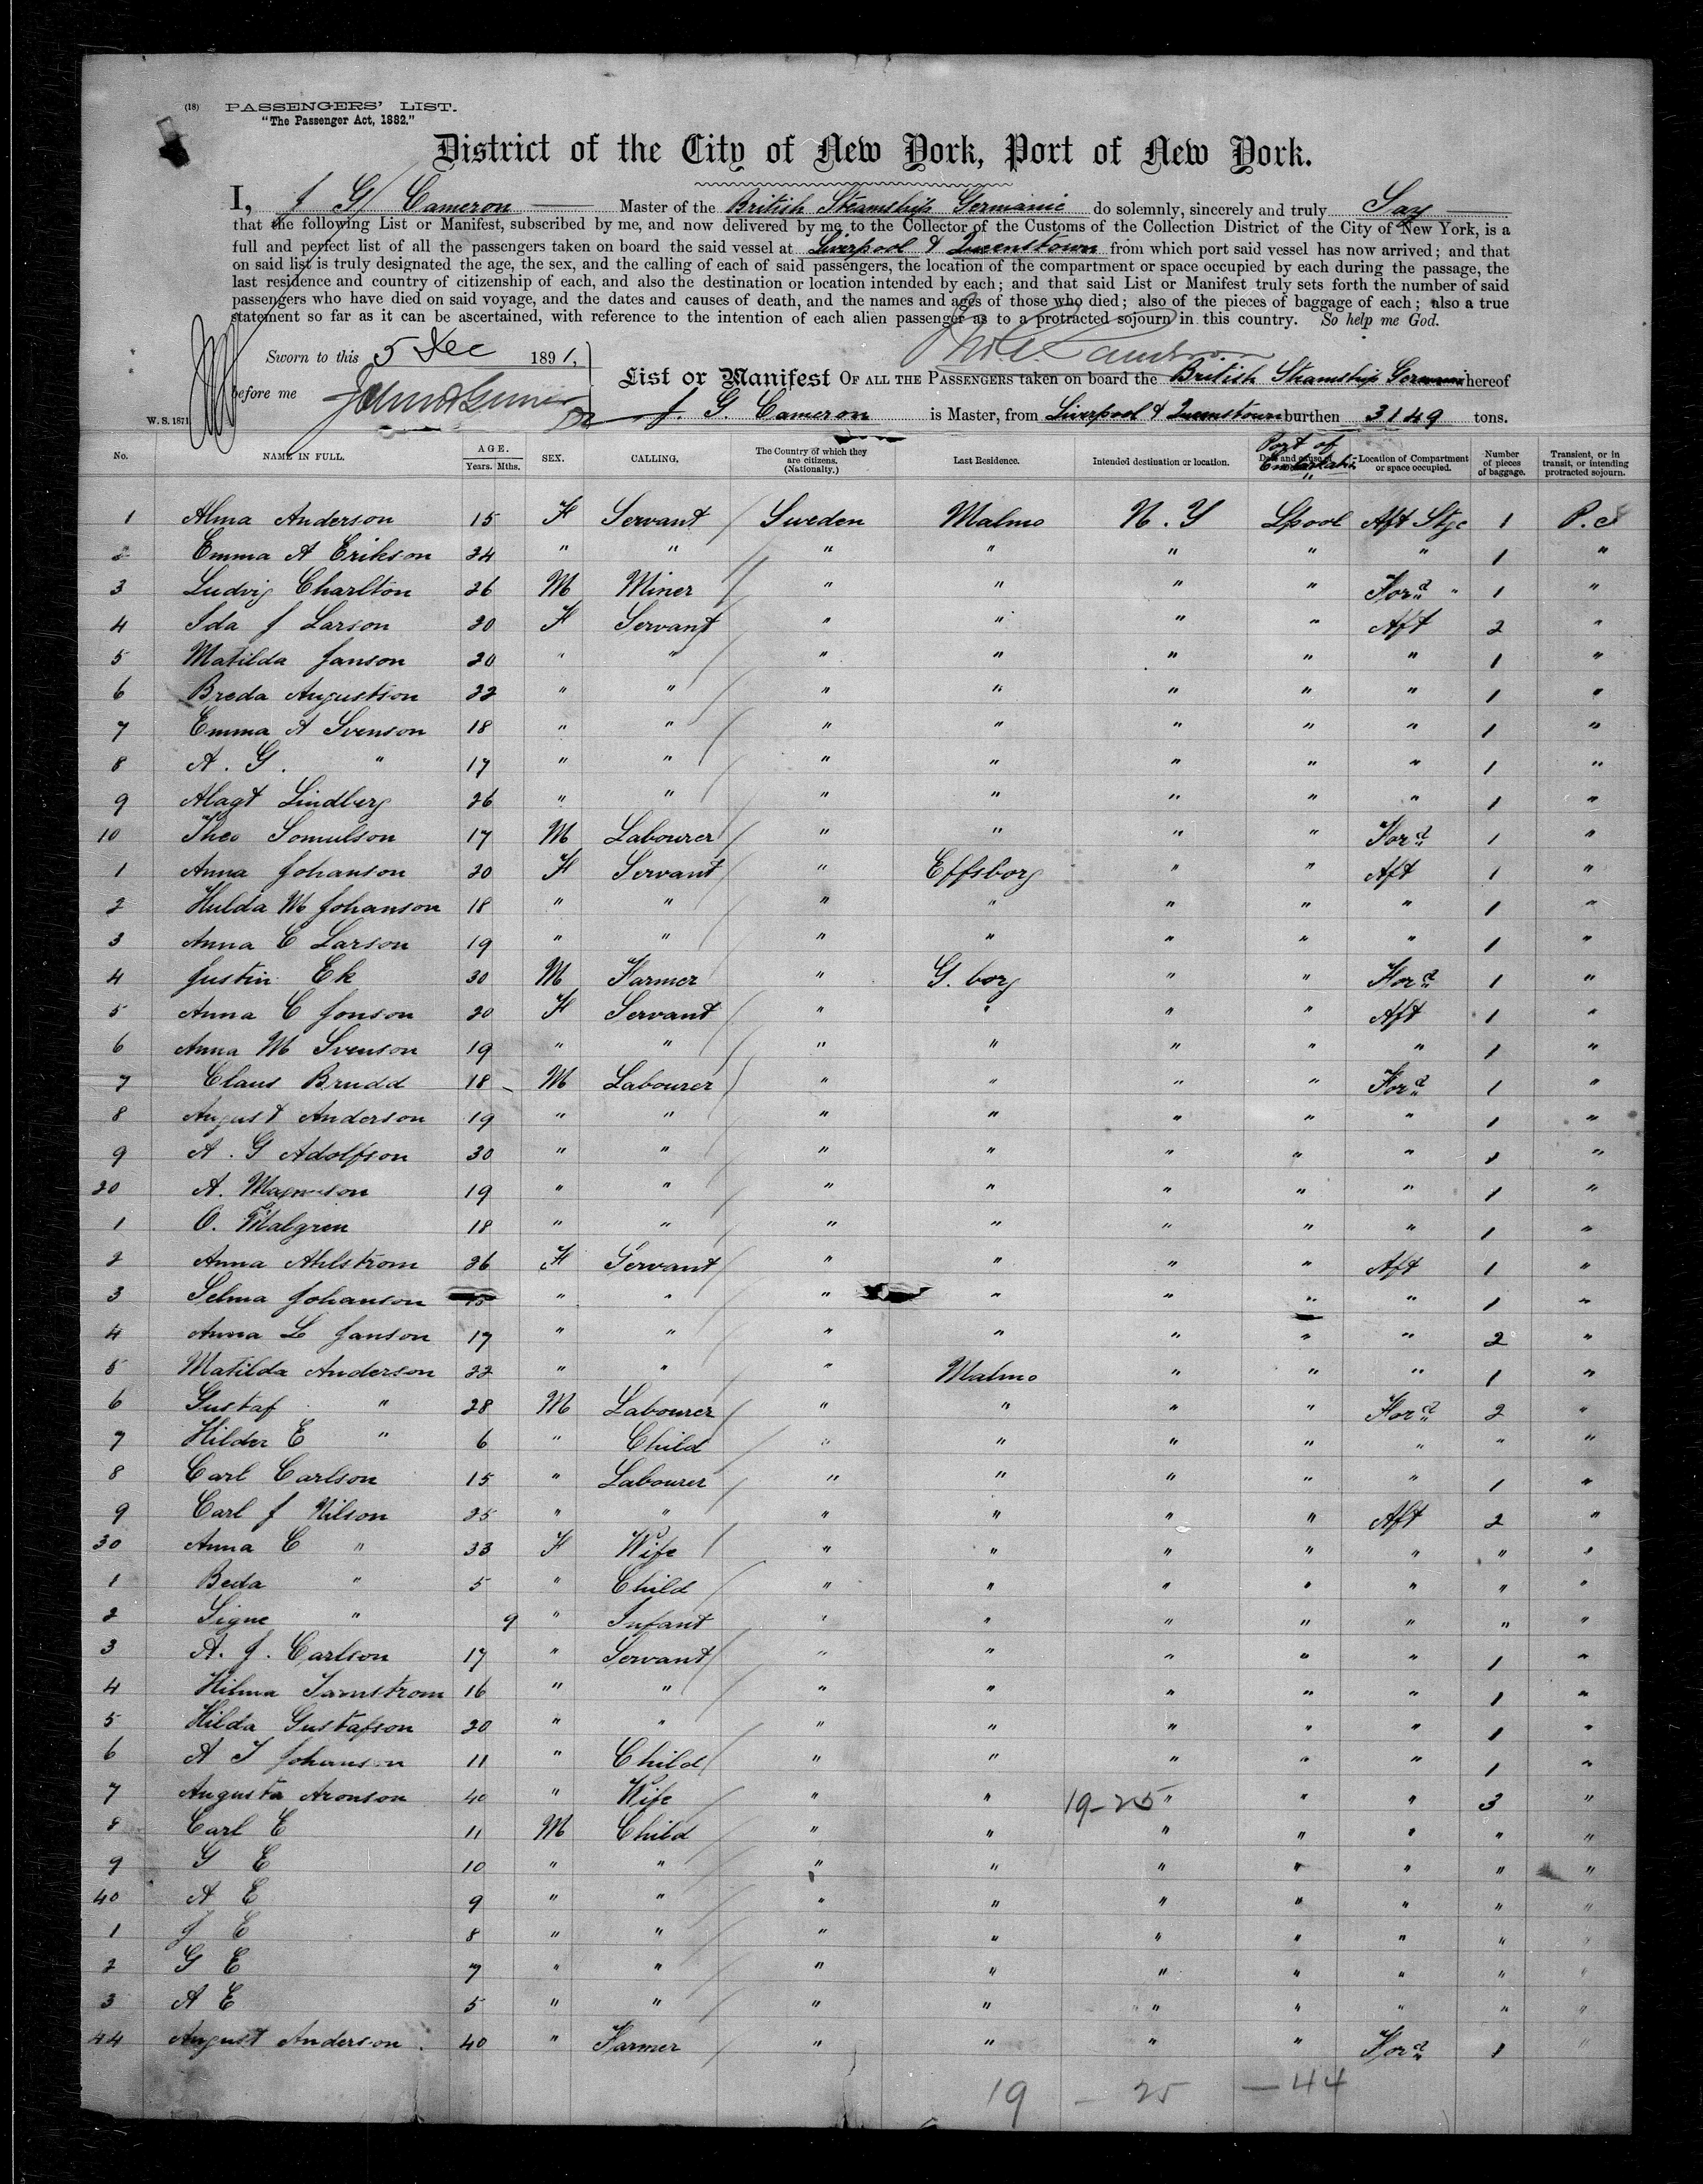 (18) PASSENGERS' LIST.
"The Passenger Act, 1882."
District of the City of New York, Port of New York.
I, J G Cameron Master of the British Steamship Germanic do solemnly, sincerely and truly Say
that the following List or Manifest, subscribed by me, and now delivered by me to the Collector of the Customs of the Collection District of the City of New York, is a
full and perfect list of all the passengers taken on board the said vessel at Liverpool & Queenstown from which port said vessel has now arrived; and that
on said list is truly designated the age, the sex, and the calling of each of said passengers, the location of the compartment or space occupied by each during the passage, the
last residence and country of citizenship of each, and also the destination or location intended by each; and that said List or Manifest truly sets forth the number of said
passengers who have died on said voyage, and the dates and causes of death, and the names and ages of those who died; also of the pieces of baggage of each; also a true
statement so far as it can be ascertained, with reference to the intention of each alien passenger as to a protracted sojourn in this country. So help me God.
Sworn to this 5 Dec 1891,
before me
List or Manifest OF ALL THE PASSENGERS taken on board the British Steamship Germanic whereof
W. S. 1871 J. G. Cameron is Master, from Liverpool & Queenstown burthen 3149 tons.
No. NAME IN FULL. AGE. Years. Mths. SEX. CALLING, The Country of which they are citizens. (Nationalty.) Last Residence. Intended destination or location. Port of Embarkation Location of Compartment or space occupied. Number of pieces of baggage. Transient, or in transit, or intending protracted sojourn.
1 Alma Anderson 15 F Servant Sweden Malmo N. Y Lpool Aft Stge 1 P. S
2 Emma A Erikson 24 " " " " " " " 1 "
3 Ludvig Charlton 26 M Miner " " " " Ford " 1 "
4 Ida J Larson 20 F Servant " " " " Aft 2 "
5 Matilda Janson 20 " " " " " " " 1 "
6 Breda Augustson 22 " " " " " " " 1 "
7 Emma A Svenson 18 " " " " " " " 1 "
8 A. G. " 17 " " " " " " " 1 "
9 Alagt Lindberg 26 " " " " " " " 1 "
10 Theo Somulson 17 M Labourer " " " " Ford 1 "
1 Anna Johanson 20 F Servant " Effsborg " " Aft 1 "
2 Hulda M Johanson 18 " " " " " " " 1 "
3 Anna C Larson 19 " " " " " " " 1 "
4 Justin Ek 30 M Farmer " G. borg " " Ford 1 "
5 Anna C Jonson 20 F Servant " " " " Aft 1 "
6 Anna M Svenson 19 " " " " " " " 1 "
7 Claus Brudd 18 M Labourer " " " " Ford 1 "
8 August Anderson 19 " " " " " " " 1 "
9 A. G Adolfson 30 " " " " " " " 1 "
20 A. Magnuson 19 " " " " " " " 1 "
1 O. Malgren 18 " " " " " " " 1 "
2 Anna Ahlstrom 26 F Servant " " " " Aft 1 "
3 Selma Johanson " " " " " " " 1 "
4 Anna L Janson 17 " " " " " " " 2 "
5 Matilda Anderson 22 " " " Malmo " " " 1 "
6 Gustaf " 28 M Labourer " " " " Ford 2 "
7 Hilder E " 6 " Child " " " " " " "
8 Carl Carlson 15 " Labourer " " " " " 1 "
9 Carl J Nilson 25 " " " " " " Aft 2 "
30 Anna C " 33 F Wife " " " " " " "
1 Beda " 5 " Child " " " " " " "
2 Signe " 9 " Infant " " " " " " "
3 A. J. Carlson 17 " Servant " " " " " 1 "
4 Hilma 16 " " " " " " " 1 "
5 Hilda Gustafson 20 " " " " " " " 1 "
6 A T Johanson 11 " Child " " " " " 1 "
7 Augusta Aronson 40 " Wife " " 19-25 " " " 3 "
8 Carl E 11 M Child " " " " " " "
9 G E 10 " " " " " " " " "
40 A E 9 " " " " " " " " "
1 J E 8 " " " " " " " " "
2 G E 7 " " " " " " " " "
3 A E 5 " " " " " " " " "
44 August Anderson. 40 " Farmer " " " " Ford 1 "
19 - 25 - 44